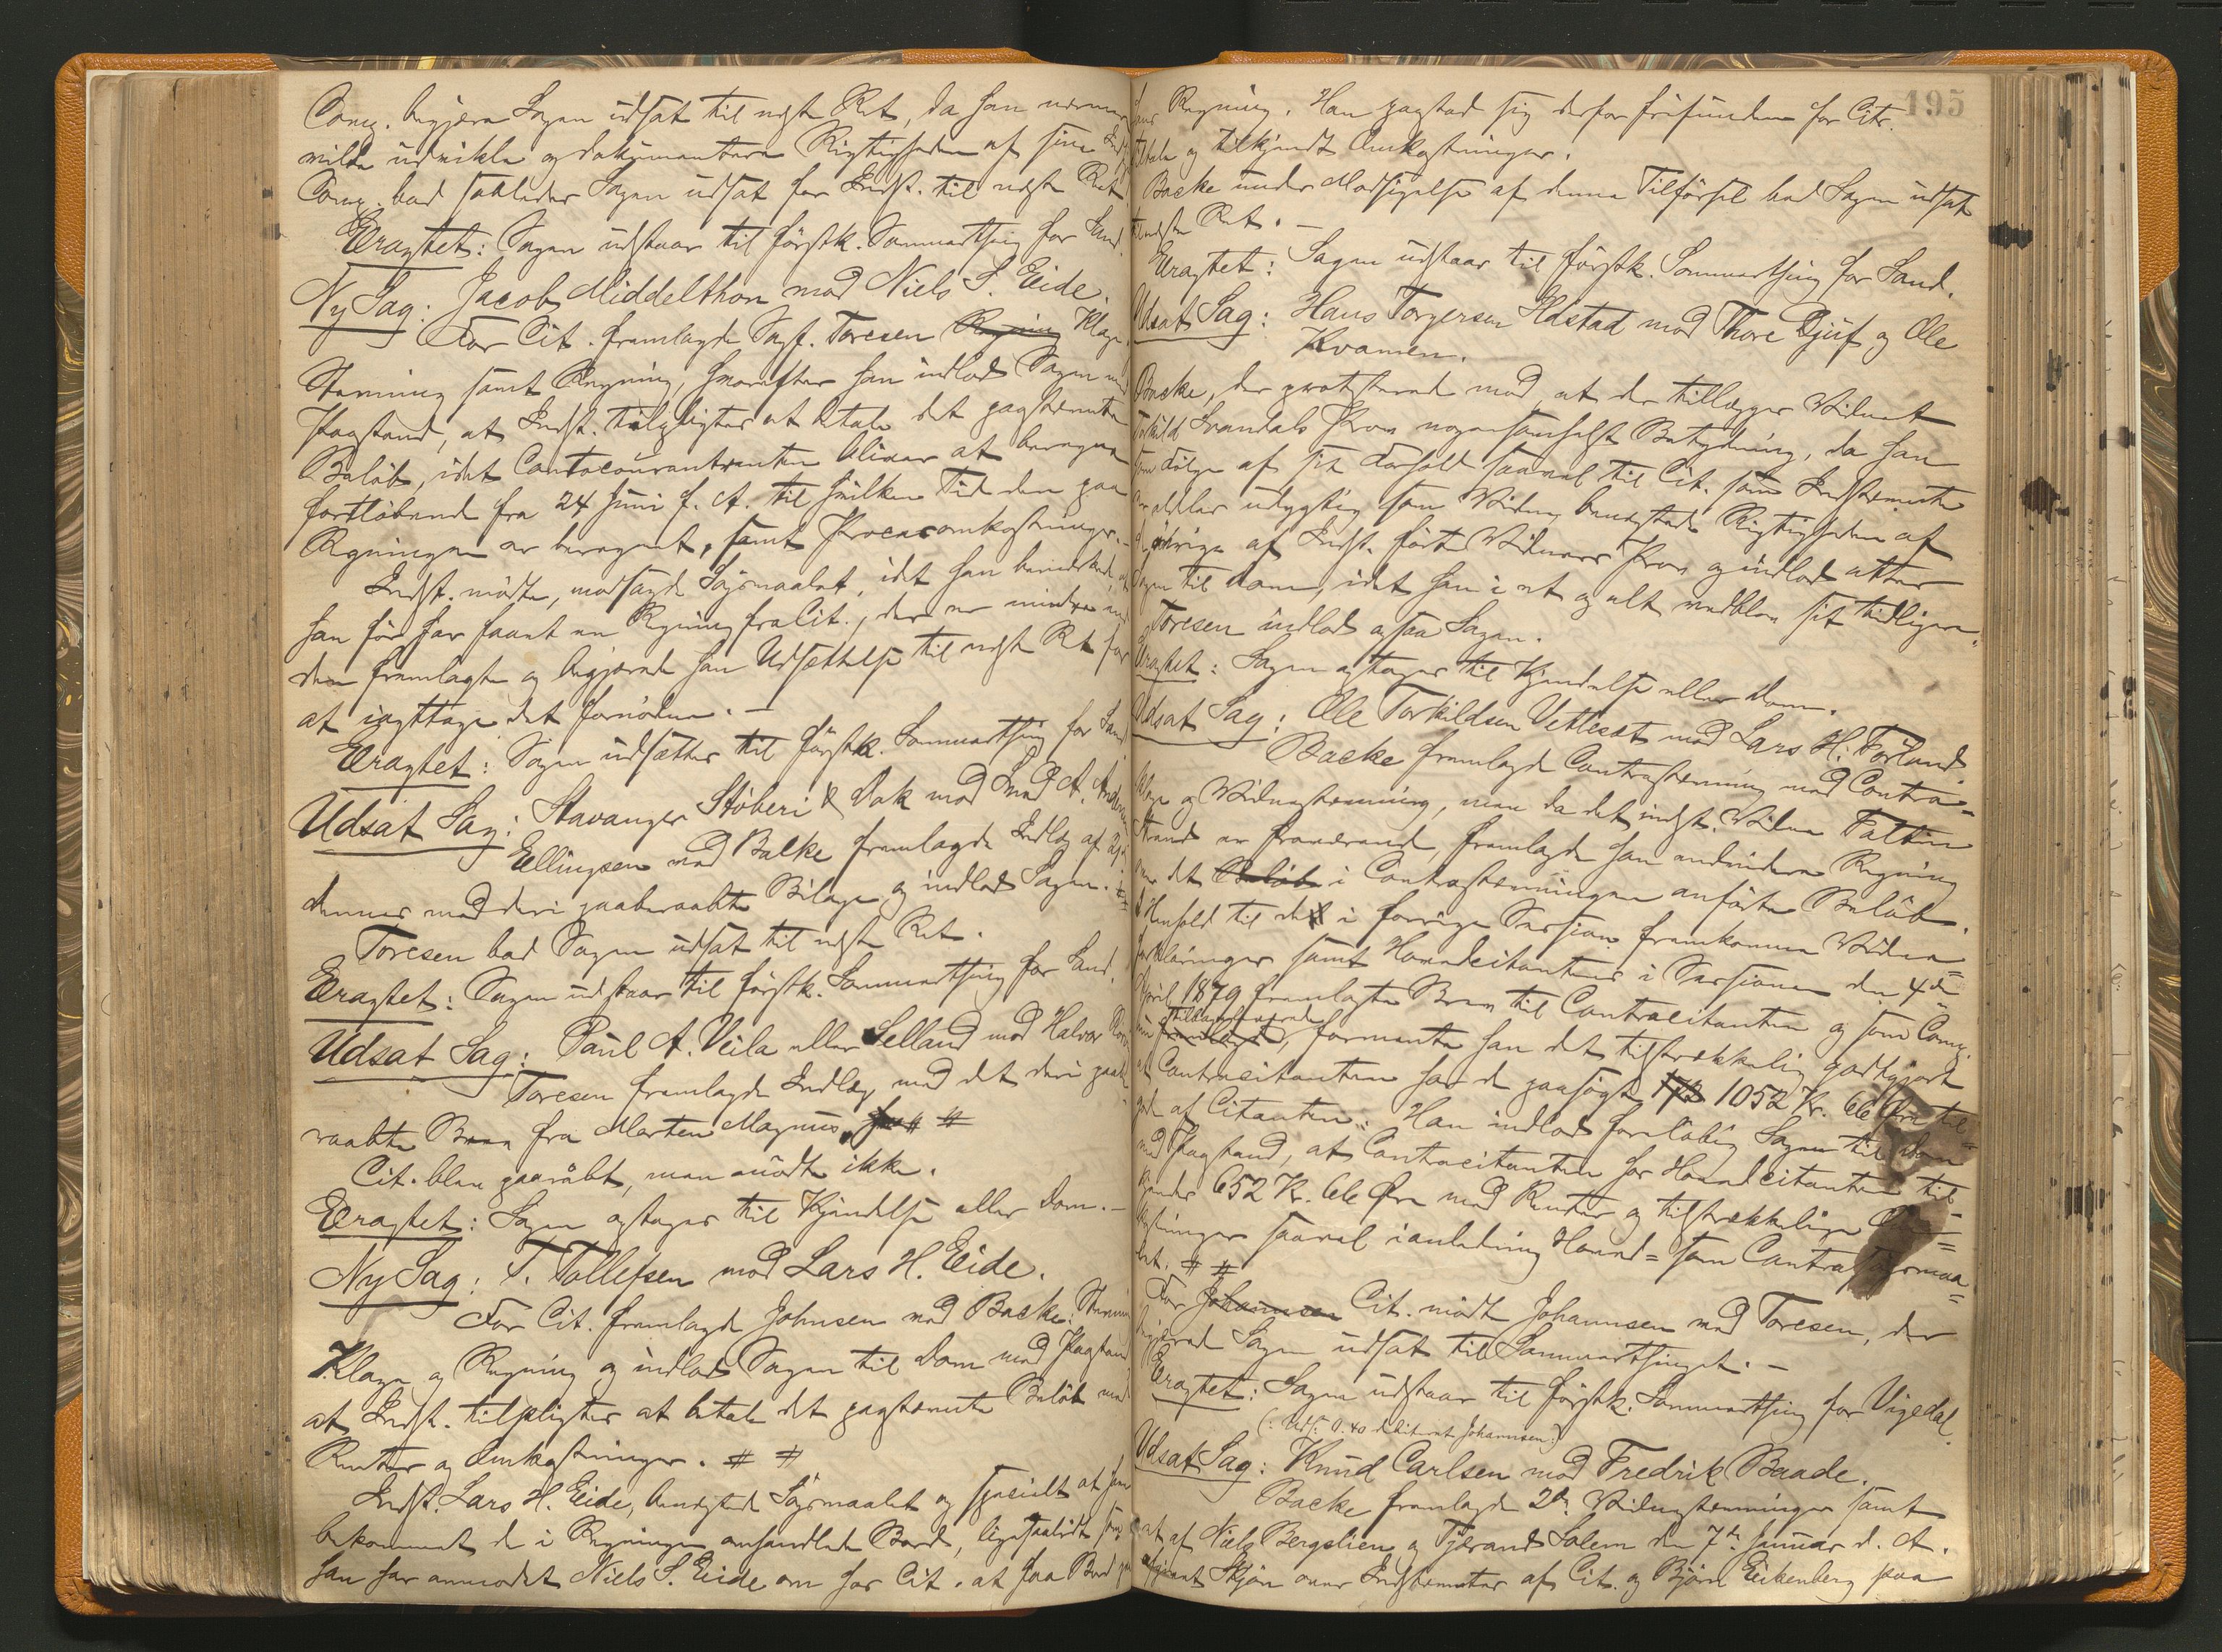 Comp. begjærte Sagen udsat til næste Ret, da han nærmere
vilde udvikle og dokumentere Rigtigheden af sine
Comp. bad saaledes Sagen udsat for Indst. til næste Ret
Eragtet: Sagen udstaar til förstk. Sommerthing for Sand.
Ny Sag: Jacob Middelthon mod Niels S. Eide.
For Cit. fremlagde Sagf. Toresen Regning Klage
Stævning samt Regning, hvorefter han indlod Sagen med
Paastand, at Indst. tilpligtes at betale det paastævnte
Belöb, idet Contocourantrenten bliver at beregne
fortlöbende fra 24 Juni f. A. til hvilken Tid den paa
Regningen er beregnet, samt Procesomkostninger.-
Indst. mödte, modsagde Sögsmaalet, idet han bemærkede, at
han för har faaet en Regning fra Cit., der er mindre end
den fremlagte og begjærede han Udsættelse til næste Ret for
at iagttage det fornödne. -
Eragtet: Sagen udsættes til förstk. Sommerthing for Sand
Udsat Sag: Stavanger Stöberi & Dok mod A.
Ellingsen med Balke fremlagde Indlæg af
dennes med deri paaberaabte Bilage og indlod Sagen.
Toresen bad Sagen udsat til næste Ret.
Eragtet: Sagen udstaar til förstk. Sommerthing for Sand.
Udsat Sag: Paul A. Veila eller Selland mod Halvor
Toresen fremlagde Indlæg med det deri paabe
raabte Brev fra Morten Magnus, # #
Cit. blev paaraabt, men mödte ikke.
Eragtet: Sagen optages til Kjendelse eller Dom.-
Ny Sag: T. Tollefsen mod Lars H. Eide.
For Cit. fremlagde Johnsen med Backe: Stævning
Klage og Regning og indlod Sagen til Dom med Paastand
at Indst. tilpligtes at betale det paastævnte Belöb med
Renter og Omkostninger. # #
Indst. Lars H. Eide, benegtede Sögsmaalet og specielt at have
bekommet de i Regningen omhandlede Bord, ligesaalidt som
han har anmodet Niels S. Eide om hos Cit. at faa Bord paa
195
hans Regning. Han paastod sig derfor frifunden for Cits.
Tiltale og tilkjendt Omkostninger.
Backe under Modsigelse af denne Tilförsel bad Sagen udsat
til næste Ret. -
Eragtet: Sagen udstaar til förstk. Sommerthing for Sand.
Udsat Sag: Hans Torgersen Hastad mod Thore Djuf og Ole
Kvamen.
Backe, der protesterede mod, at der tillægges Vidnet
Torkild Svandals Prov nogensomhelst Betydning, da han
som Fölge af sit Forhold saavel til Cit. som Indstævnte
er aldeles udygtig som Vidne benegtede Rigtigheden af
de övrige af Indst. förte Vidners Prov og indlod atter
Sagen til Dom, idet han i et og alt vedblev sit tidligere.
Toresen indlod ogsaa Sagen.
Eragtet: Sagen optages til Kjendelse eller Dom.
Udsat Sag: Ole Torkildsen Vetlesæt mod Lars H. Förland.
Backe fremlagde Contrastevning med Contra=
klage og Vidnestævning, men da det indst. Vidne Faltin
Strand er fraværende, fremlagde han endvidere Regning
over det Belöb i Contrastevningen anförte Belöb.
I Henhold til det i forrige Session fremkomne Vidne=
forklaringer samt Hovedcitantens i Sessionen den 4de
April 1879 fremlagte Brev til Contracitanten og som Comp.
nu fremlagde, formente han det tilstrækkelig godtgjort
at Contracitanten har de paasögte 1052 Kr. 66 Öre til=
gode af Citanten. Han indlod foreløbig Sagen til Dom
med Paastand, at Contracitanten hos Hovedcitanten til=
kjendes 652 Kr. 66 Öre med Renter og tilstrækkelige Om=
kostninger saavel i anledning Hoved= som Contrasögsmaa=
let. # #
For Johannesen Cit. mödte Johannesen med Toresen, der
begjærede Sagen udsat til Sommerthinget. -
Eragtet: Sagen udstaar til förstk. Sommerthing for Vigedal.
(: Udf: 0.40 debiteret Johannesen:)
Udsat Sag: Knud Carlsen mod Fredrik Baade.
Backe fremlagde 2de Vidnestævninger samt
et af Niels Bergslien og Tjærand Solem den 7de Januar d. A.
afgivet Skjön over Indstævntes af Cit. og Björn Eikenberg paa